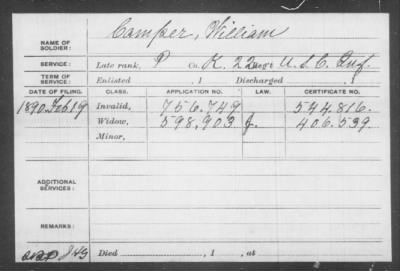 NAME OF SOLDIER: Camper, William
SERVICE: Late rank, P Co. K, 22 Regt U.S.C. Inf.
TERM OF SERVICE: Enlisted , 1 Discharged , 1
DATE OF FILING. CLASS. APPLICATION NO. LAW. CERTIFICATE NO.
1890 Feb 19 Invalid, 756.749 544.816.
Widow, 598,903 J. 406.539.
Minor,
ADDITIONAL SERVICES:
REMARKS:
Died , 1 , at